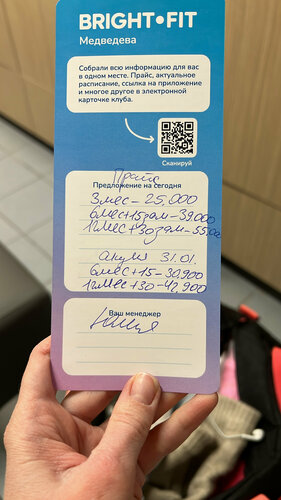 BRIGHT•FIT
Медведева
Собрали всю информацию для вас
в одном месте. Прайс, актуальное
расписание, ссылка на приложение
и многое другое в электронной
карточке клуба.
Сканируй
Прайс
Предложение на сегодня
3мес – 25.000
6мес+15зам – 39000
12мес+30зам – 55.00
акция 31.01.
6мес+15 – 30,900
12мес+30 – 42,900
Ваш менеджер